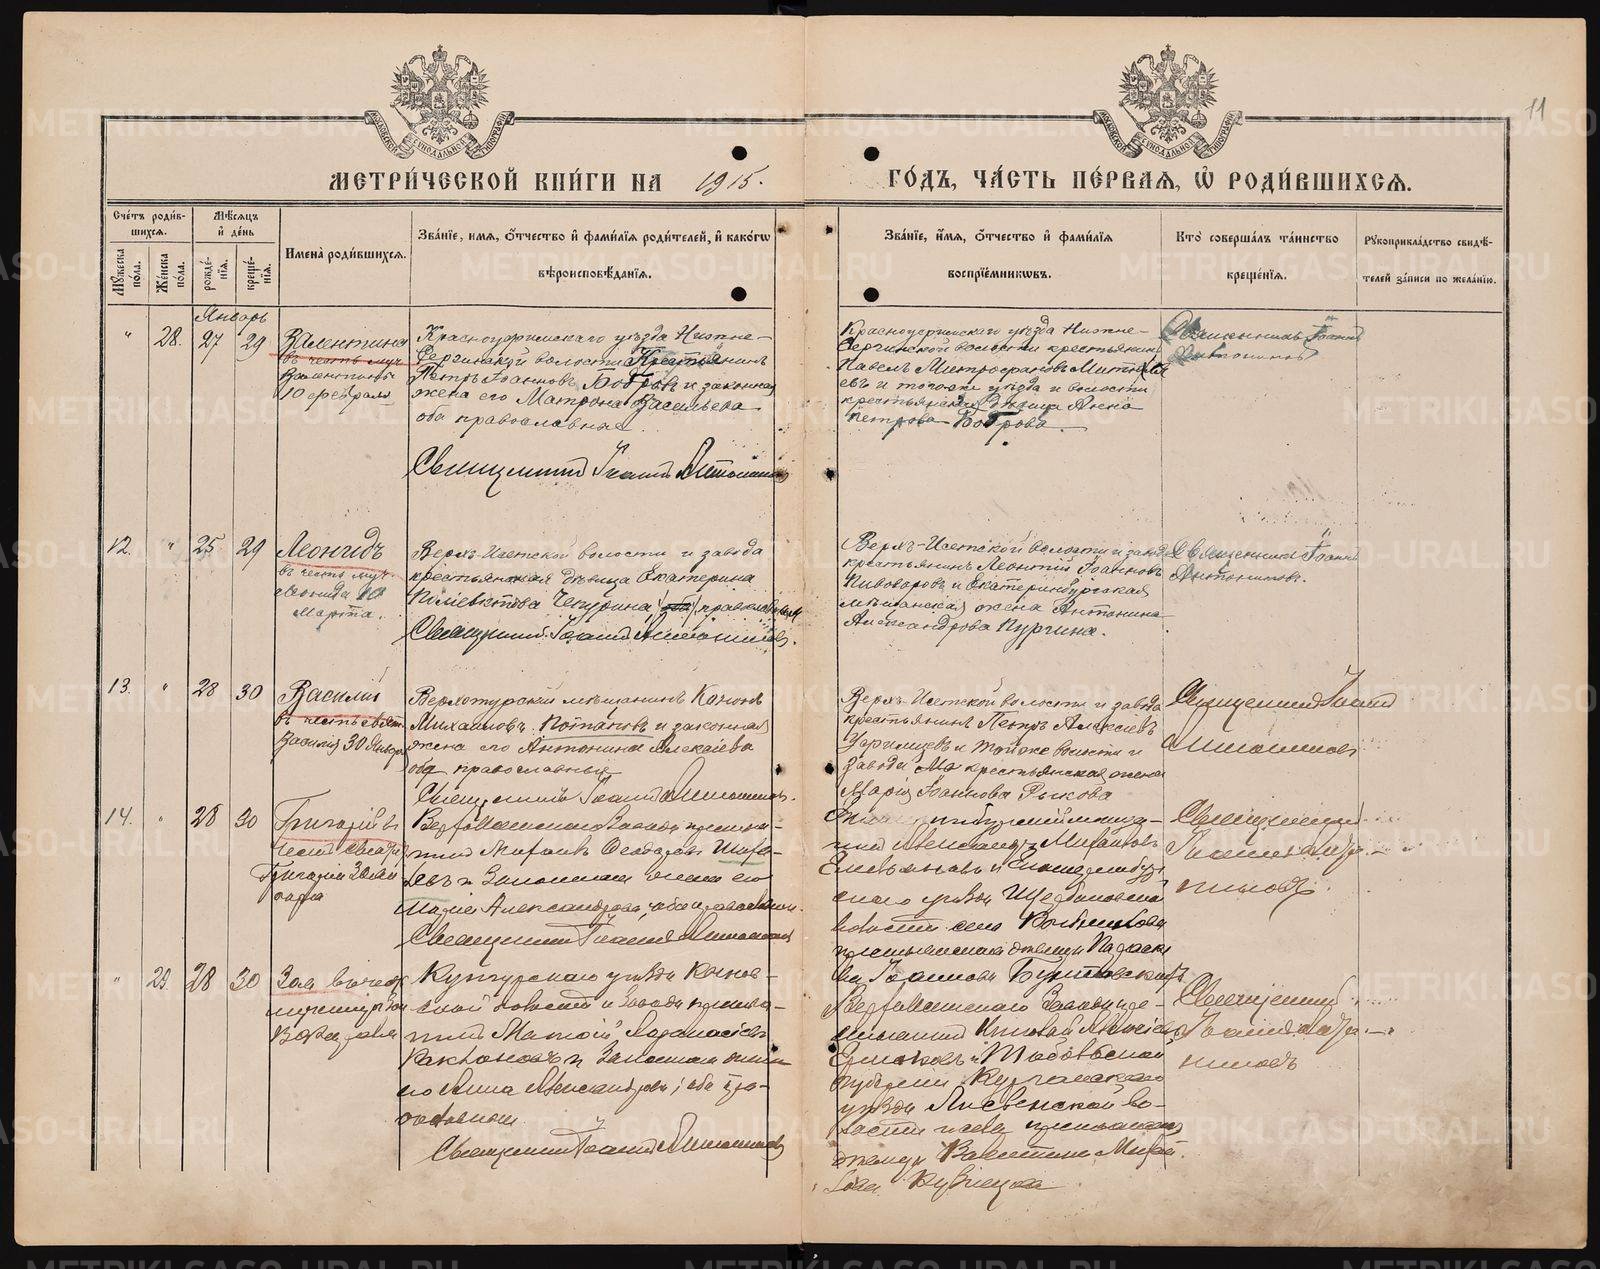 11
МЕТРИ́ЧЕСКОЙ КНИ́ГИ НА 1915.
ГО́ДЪ, ЧА́СТЬ ПЕ́РВАЯ, Ѽ РОДИ́ВШИХСЯ.
Сче́тъ роди́в-
шихся.
Мѣ́сяцъ
и҆ де́нь
Му́жеска
по́ла.
Же́нска
по́ла.
рожде́-
нїя.
креще́-
нїя.
Имена̀ роди́вшихся.
Зва́нїе, и́мя, ѻ҆́тчество и҆ фами́лїя роди́телей, и҆ како́гѡ
вѣроисповѣ́данїя.
Зва́нїе, и҆́мя, ѻ҆́тчество и҆ фами́лїя
воспрїе́мниковъ.
Кто̀ соверша́лъ та́инство
креще́нїя.
Рукоприкла́дство свидѣ́-
телей за́писи по жела́нїю.
Январь
" 28. 27 29
Валентина
въ честь муч.
Валентины
10 февраля
Красноуфимскаго уѣзда Нижне-
Сергинской волости Крестьянинъ
Петръ Іоанновъ Бобровъ и законная
жена его Матрона Васильева
оба православные
Священникъ Іоаннъ Антониновъ
Красноуфимскаго уѣзда Нижне-
Сергинской волости крестьянинъ
Павелъ Митрофановъ
евъ и того же уѣзда и волости
крестьянская дѣвица Анна
Петрова Боброва.
Священникъ Іоаннъ
Антониновъ
12. " 25 29
Леонидъ
въ честь муч.
Леонида 10
Марта.
Верхъ-Исетской волости и завода
крестьянская дѣвица Екатерина
Поліевктова Чепурина, православная
Священникъ Іоаннъ Антониновъ.
Верхъ-Исетской волости и завода
крестьянинъ Леонтій Іоанновъ
Пивоваровъ и Екатеринбургская
мѣщанская жена Антонина
Александрова Пургина.
Священникъ Іоаннъ
Антониновъ.
13. " 28 30
Василій
въ честь святит.
Василія 30 Января
Верхотурскій мѣщанинъ Кононъ
Михайловъ Потаповъ и законная
жена его Антонина Алексѣева
оба православные
Священникъ Іоаннъ Антониновъ.
Верхъ-Исетской волости и завода
крестьянинъ Петръ Алексѣевъ
и той же волости и
завода крестьянская жена
Марія Іоаннова Рыкова
Священникъ Іоаннъ
Антониновъ
14. " 28 30
Григорій въ
честь святит.
Григорія 30 Ян
варя
Верхъ-Исетскаго Завода крестья-
нинъ Ѳеодоровъ
евъ и Законная жена его
Марія Александрова, оба православные.
Священникъ Іоаннъ Антониновъ
Екатеринбургскій мѣща-
нинъ Александръ Михайловъ
и Екатеринбург
скаго уѣзда Щербаковской
волости села
крестьянская дѣвица Параске
ва Іоаннова
Священникъ
Іоаннъ Анто-
ниновъ
" 29. 28 30
Зоя въ честь
мученицы Зои
Кунгурскаго уѣзда Кынов-
ской волости и Завода крестья-
нинъ Матѳій Аѳанасьевъ
и Законная жена
его Анна Александрова; оба пра-
вославные
Священникъ Іоаннъ Антониновъ
Верхъ-Исетскаго Завода кре-
стьянинъ Николай Алексѣев
и Тобольской
губерніи Курганскаго
уѣзда
волости крестьянская
дѣвица Валентина Михай
лова Кузнецова
Священникъ
Іоаннъ Анто-
ниновъ
METRIKI.GASO-URAL.RU